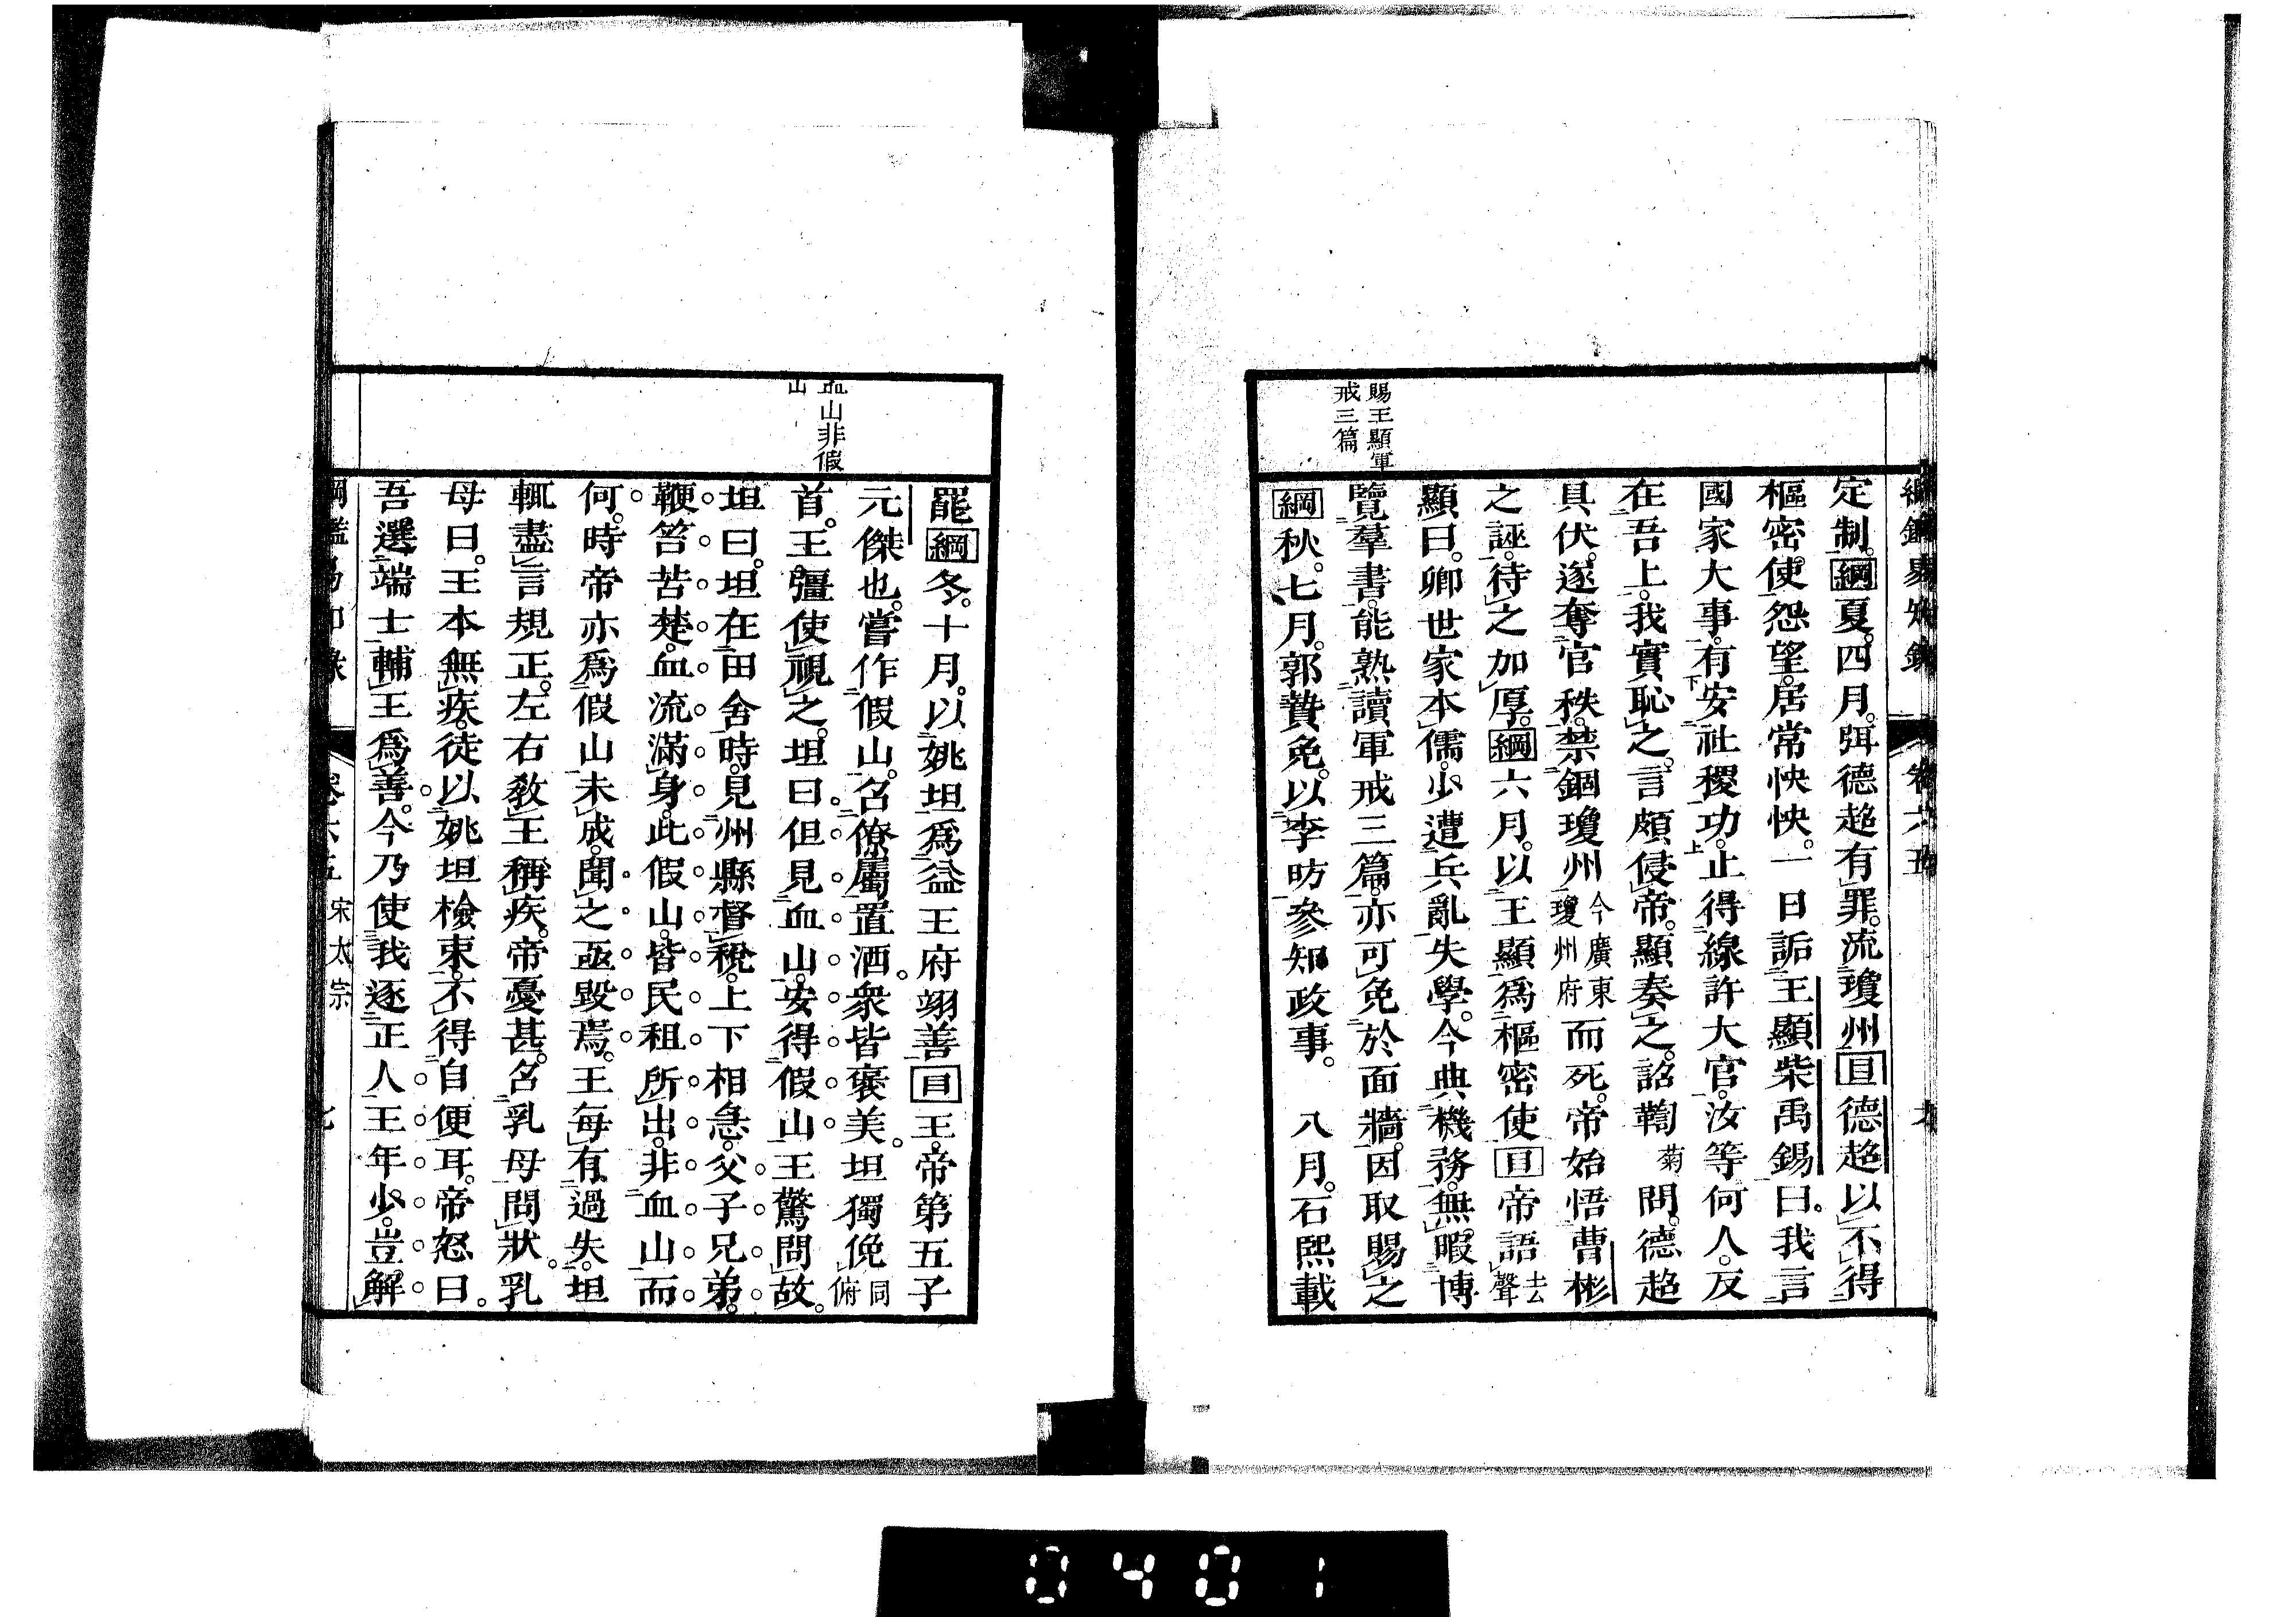 賜王顯軍
戒三篇
定制。綱夏。四月。弭德超有罪。流瓊州目德超以不得
樞密使。怨望。居常怏怏。一日詬王顯柴禹錫曰。我言
國家大事。有安社稷功。止得線許大官。汝等何人。反
在吾上。我實恥之。言頗侵帝。顯奏之。詔鞫菊問。德超
具伏。遂奪官秩。禁錮瓊州今廣東瓊州府而死。帝始悟曹彬
之誣。待之加厚。綱六月。以王顯爲樞密使目帝語去聲
顯曰。卿世家本儒。少遭兵亂失學。今典機務。無暇博
覽羣書。能熟讀軍戒三篇。亦可免於面牆。因取賜之
綱秋。七月。郭贄免。以李昉參知政事。 八月。石熙載
山非假
山
罷綱冬。十月。以姚坦爲益王府翊善目王。帝第五子
元傑也。嘗作假山。召僚屬置酒。衆皆褒美。坦獨俛同俯
首。王彊使視之。坦曰。但見血山。安得假山。王驚問故。
坦曰。坦在田舍時。見州縣督稅。上下相急。父子兄弟。
鞭笞苦楚。血流滿身。此假山。皆民租所出。非血山而
何。時帝亦爲假山未成。聞之亟毀焉。王每有過失。坦
輒盡言規正。左右敎王稱疾。帝憂甚。召乳母問狀。乳
母曰。王本無疾。徒以姚坦檢束。不得自便耳。帝怒曰。
吾選端士輔王爲善。今乃使我逐正人。王年少。豈解
宋太宗